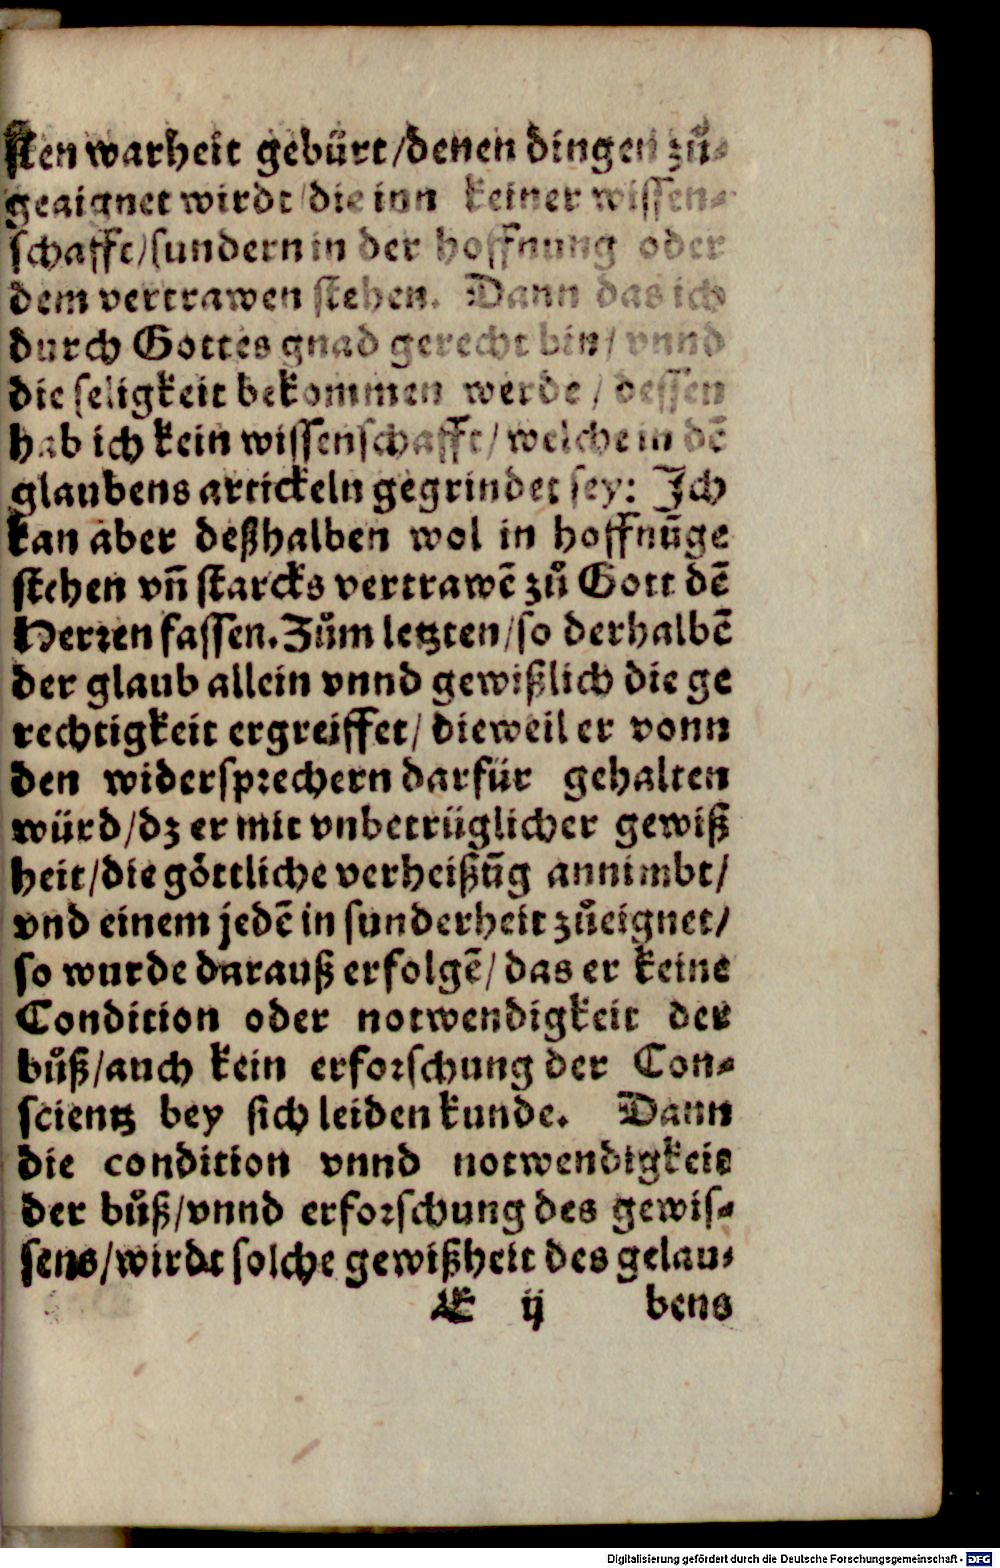 sten warheit gebürt/denen dingen zů-
geaignet wirdt/die inn keiner wissen-
schafft/sundern in der hoffnung oder
dem vertrawen stehen. Dann das ich
durch Gottes gnad gerecht bin/vnnd
die seligkeit bekommen werde/dessen
hab ich kein wissenschafft/welche in dẽ
glaubens artickeln gegrindet sey: Ich
kan aber deßhalben wol in hoffnũge
stehen vñ starcks vertrawẽ zů Gott dẽ
Herren fassen. Zům letzten/so derhalbẽ
der glaub allein vnnd gewißlich die ge
rechtigkeit ergreiffet/dieweil er vonn
den widersprechern darfür gehalten
würd/dz er mit vnbetrüglicher gewiß
heit/die göttliche verheißũg annimbt/
vnd einem jedẽ in sunderheit zůeignet/
so wurde darauß erfolgẽ/das er keine
Condition oder notwendigkeit der
bůß/auch kein erforschung der Con-
scientz bey sich leiden kunde. Dann
die condition vnnd notwendigkeit
der bůß/vnnd erforschung des gewis-
sens/wirdt solche gewißheit des gelau-
Æ ij bens
Digitalisierung gefördert durch die Deutsche Forschungsgemeinschaft - DFG